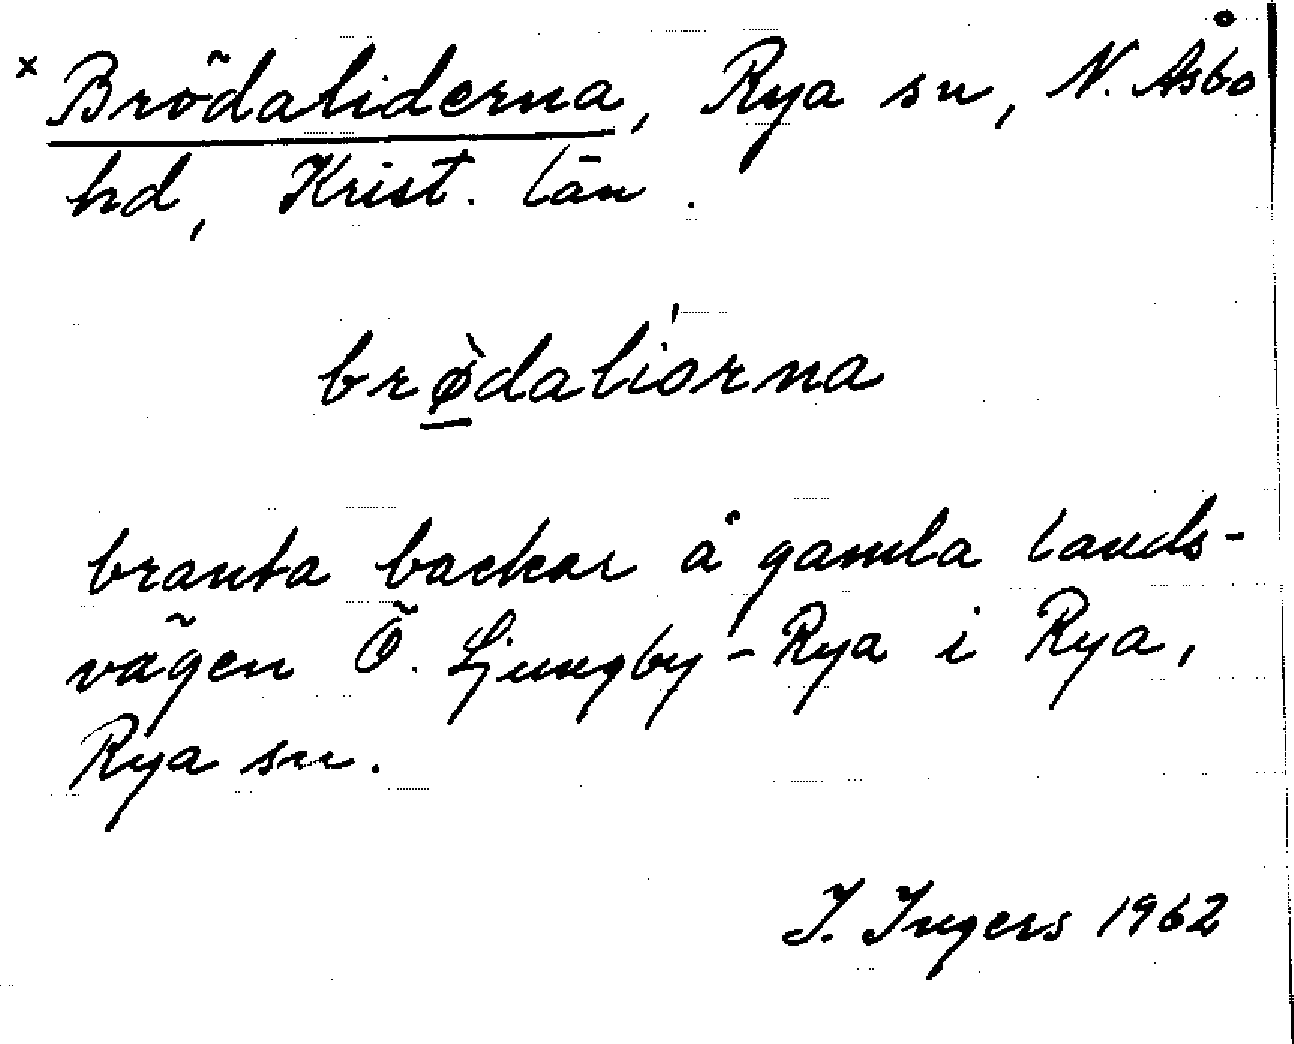 × Brödaliderna, Rya sn, N. Åsbo
hd, Krist. län.
brø̱̀dalíorna
branta backar å gamla lands-
vägen Ö. Ljungby-Rya i Rya,
Rya sn.
I. Ingers 1962